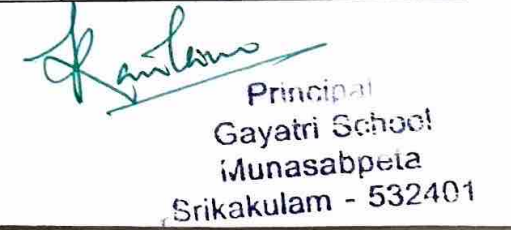 Principal
Gayatri School
Munasabpeta
Srikakulam - 532401